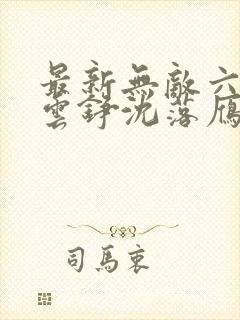 最新無敵六
雲錚沈落雁
司馬衷